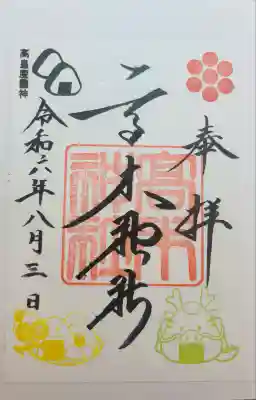 奉拝
高木神社
高木
神社
令和六年八月三日
高皇産靈神